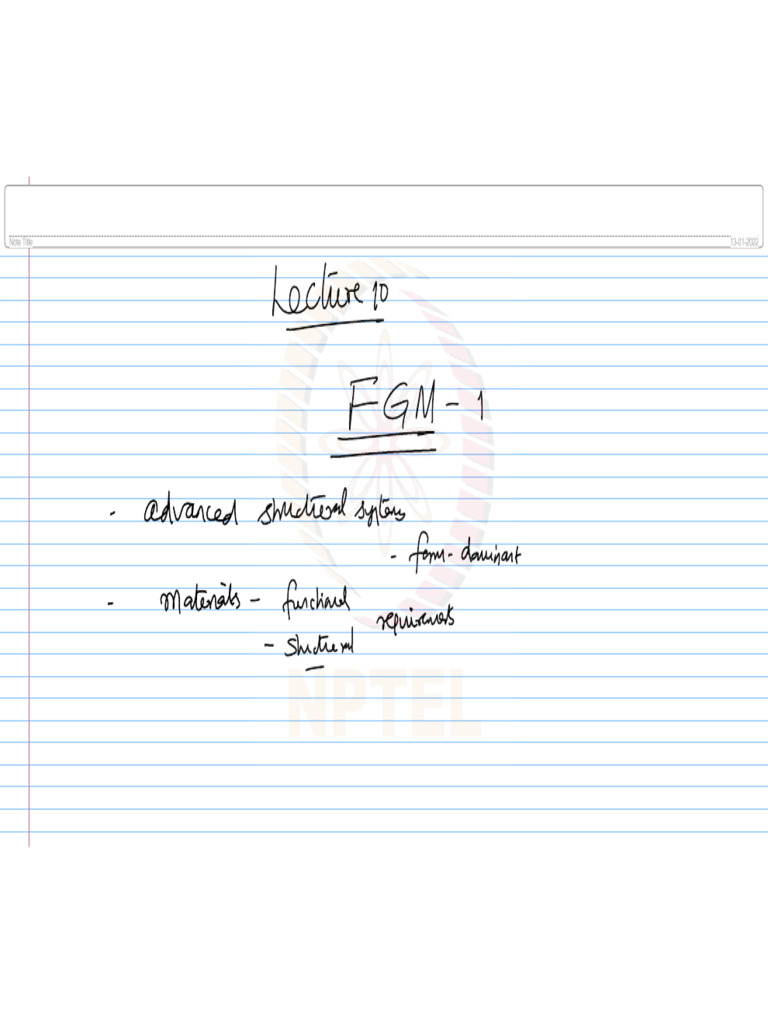 Note Title
13-01-2022
Lecture 10
FGM - 1
- advanced structural systems
- form-dominant
- Materials - functional
requirements
- Structural
NPTEL